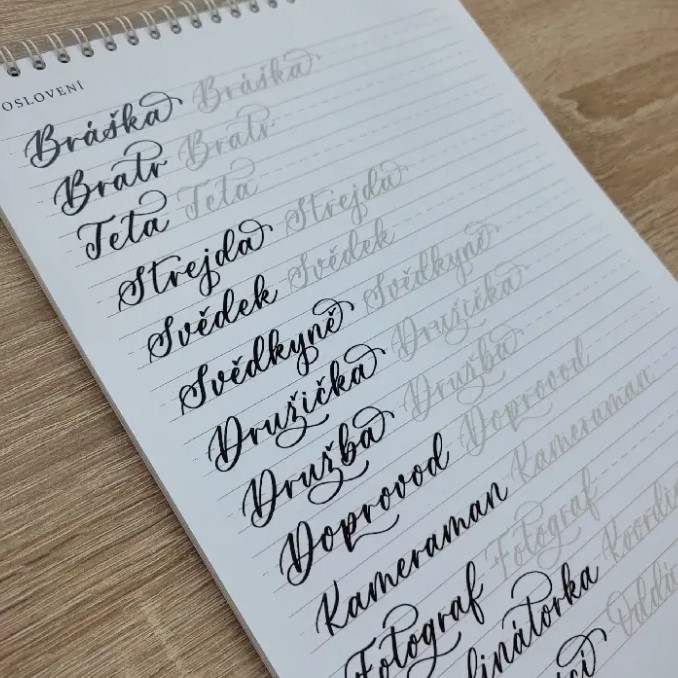 OSLOVENÍ
Bráška Bráška
Bratr Bratr
Teta Teta
Strejda Strejda
Svědek Svědek
Svědkyně Svědkyně
Družička Družička
Družba Družba
Doprovod Doprovod
Kameraman Kameraman
Fotograf Fotograf